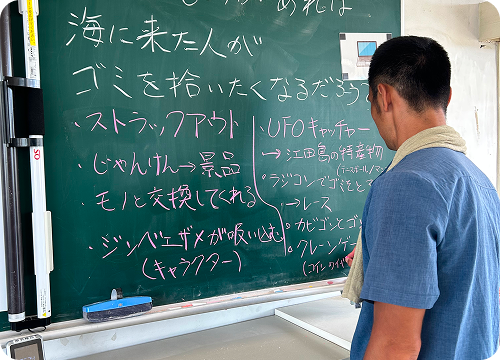 あれば
海に来た人が
ゴミを拾いたくなるだろうて
・ストラックアウト
・じゃんけん→景品
・モノと交換してくれる
・ジンベエザメが吸い込む
(キャラクター)
・UFOキャッチャー
→江田島の特産物
・ラジコンでゴミをと
→レース
・カビゴンとゴ
・クレーンゲー